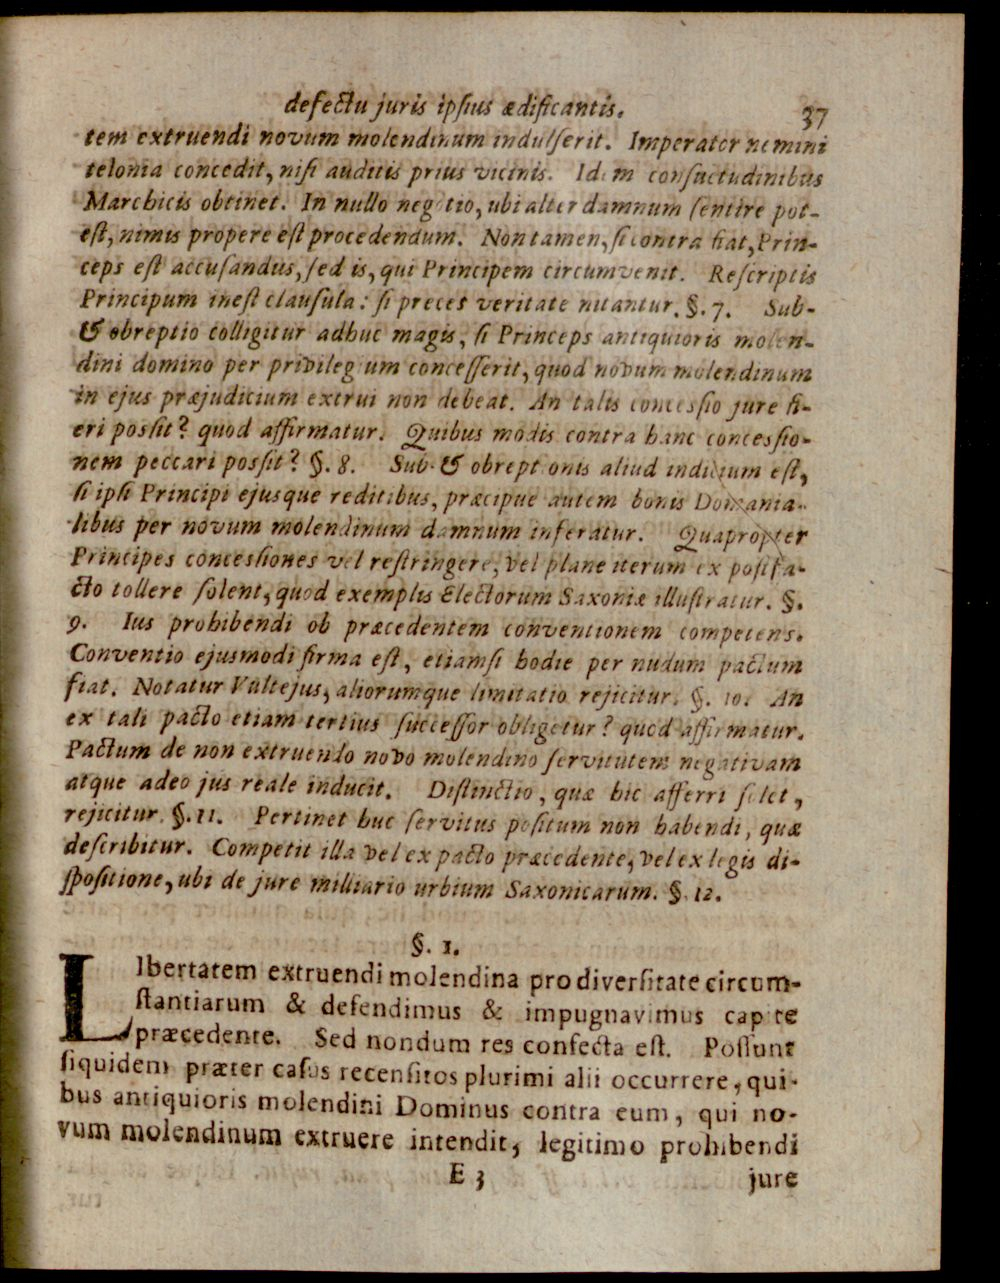 defectu juris ipsius ædificantis. 37
tem extruendi novum molendinum indulserit. Imperator nemini
telonia concedit, nisi auditis prius vicinis. Idem consuetudinibus
Marchicis obtinet. In nullo negotio, ubi alter damnum sentire pot-
est, nimis propere est procedendum. Non tamen, si contra fiat, Prin-
ceps est accusandus, sed is, qui Principem circumvenit. Rescriptis
Principum inest clausula: si preces veritate nitantur. §. 7. Sub-
& obreptio colligitur adhuc magis, si Princeps antiquioris molen-
dini domino per privilegium concesserit, quod novum molendinum
in ejus præjudicium extrui non debeat. An talis concessio jure fi-
eri possit? quod affirmatur. Quibus modis contra hanc concessio-
nem peccari possit? §. 8. Sub- & obreptionis aliud indicium est,
si ipsi Principi ejusque reditibus, præcipue autem bonis Domania-
libus per novum molendinum damnum inferatur. Quapropter
Principes concessiones vel restringere, vel plane iterum ex postfa-
cto tollere solent, quod exemplis Electorum Saxoniæ illustratur. §.
9. Ius prohibendi ob præcedentem conventionem competens.
Conventio ejusmodi firma est, etiamsi hodie per nudum pactum
fiat. Notatur Vultejus, aliorumque limitatio rejicitur. §. 10. An
ex tali pacto etiam tertius successor obligetur? quod affirmatur.
Pactum de non extruendo novo molendino servitutem negativam
atque adeo jus reale inducit. Distinctio, quæ hic afferri solet,
rejicitur. §. 11. Pertinet huc servitus positum non habendi, quæ
describitur. Competit illa vel ex pacto præcedente, vel ex legis di-
spositione, ubi de jure milliario urbium Saxonicarum. §. 12.
§. 1.
LIbertatem extruendi molendina pro diversitate circum-
stantiarum & defendimus & impugnavimus capite
præcedente. Sed nondum res confecta est. Possunt
siquidem præter casus recensitos plurimi alii occurrere, qui-
bus antiquioris molendini Dominus contra eum, qui no-
vum molendinum extruere intendit, legitimo prohibendi
E 3 jure